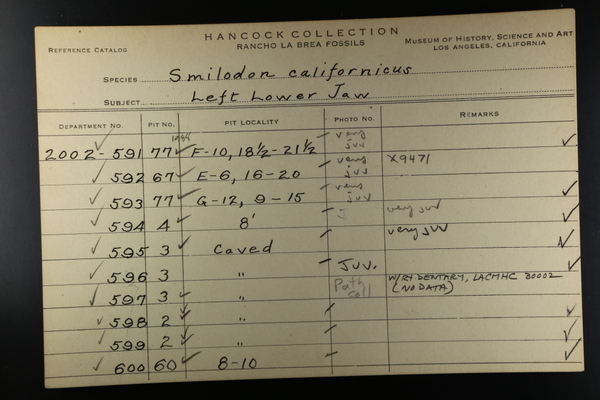 HANCOCK COLLECTION
REFERENCE CATALOG RANCHO LA BREA FOSSILS MUSEUM OF HISTORY, SCIENCE AND ART
LOS ANGELES, CALIFORNIA
SPECIES Smilodon californicus
SUBJECT Left Lower Jaw
DEPARTMENT NO. PIT NO. PIT LOCALITY PHOTO NO. REMARKS
2002-591 77 F-10, 18½-21½ very juv
592 67 E-6, 16-20 very juv X9471
593 77 G-12, 9-15 very juv
594 4 8' very juv
595 3 Caved very juv
596 3 " Juv.
597 3 " Path coll W/RT DENTARY, LACMHC 30002 (NO DATA)
598 2 "
599 2 "
600 60 8-10